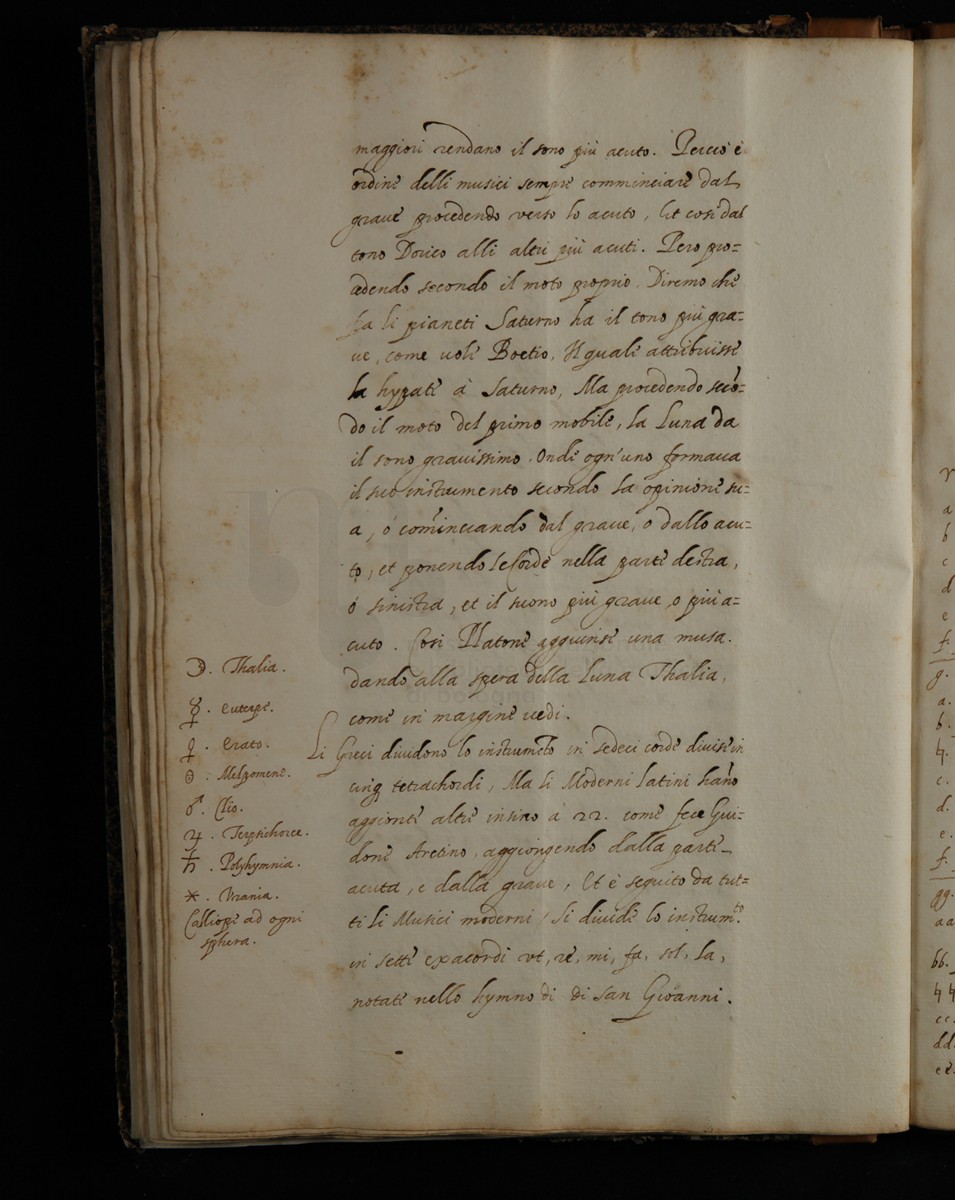 maggiori rendano il sono più acuto. Perciò è
ordine delli musici sempre comminciare dal
grave procedendo verso lo acuto, Et così dal
tono Dorico alli altri più acuti. Però pro=
cedendo secondo il moto proprio. Diremo che
fra li pianeti Saturno ha il tono più gra=
ue, come uole Boetio, Il quale attribuisse
la hypate à Saturno, Ma procedendo secō=
do il moto del primo mobile, la Luna da
il sono grauissimo. Onde ogn'uno formaua
il suo instrumento secondo la opinione su=
a, ò com̄inciando dal graue, o dallo acu=
to, et ponendo le Corde nella parte destra,
ò sinistra, et il suono più graue, o più a=
cuto. Così Platone aggiunse una musa.
dando alla spera della Luna Thalia,
come in margine uedi.
☽. Thalia.
☿. euterpe.
♀. erato.
☉. Melpomene.
♂. Clio.
♃. Terpsichorce.
♄. Polyhymnia.
*. Vrania.
Calliope ad ogni
sphera.
Li Greci diuidono lo instrumēto in sedeci corde diuise in
cinq tetrachordi, Ma li Moderni Latini han̄o
aggionte altre insino à 22. come fece Gui=
done Aretino, aggiongendo dalla parte
acuta, e dalla graue, Et è seguito da tut=
ti li Musici moderni, Si diuide lo instrum.to
in sette exacordi vt, re, mi, fa, sol, la,
notate nello hymno di di San Giouanni.
a
b
c
d
e
f.
g.
a.
b.
♮.
c.
d.
e.
f.
gg.
aa
bb.
♮♮
cc.
dd.
ee.